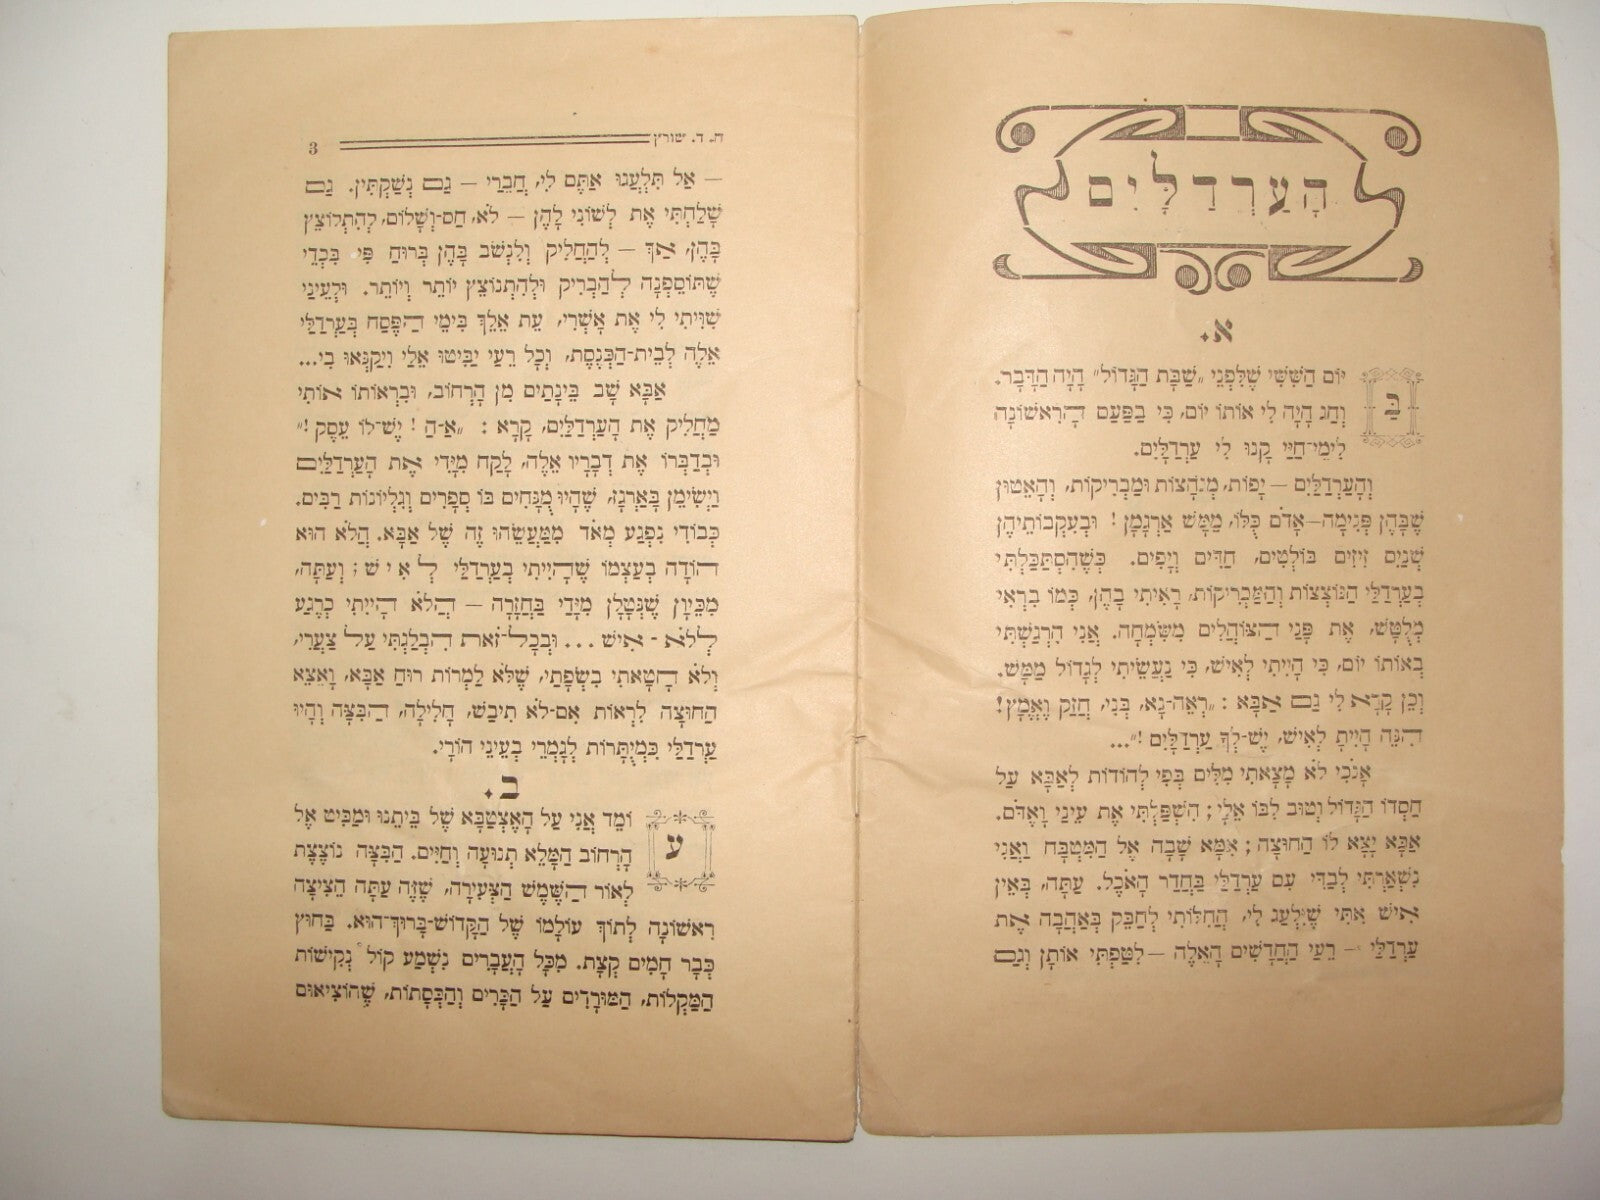 הָעַרְדָלַיִם
א.
בַּ
יוֹם הַשִּׁשִּׁי שֶׁלִּפְנֵי „שַׁבַּת הַגָּדוֹל” הָיָה הַדָּבָר.
וְחַג הָיָה לִי אוֹתוֹ יוֹם, כִּי בַפַּעַם הָרִאשׁוֹנָה
לִימֵי־חַיַּי קָנוּ לִי עַרְדָלָיִם.
וְהָעַרְדָלַיִם – יָפוֹת, מְגֹהָצוֹת וּמַבְרִיקוֹת, וְהָאַטוּן
שֶׁבָּהֶן פְּנִימָה–אָדֹם כֻּלּוֹ, מַמָּשׁ אַרְגָּמָן! וּבְעִקְבוֹתֵיהֶן
שְׁנַיִם זִיזִים בּוֹלְטִים, חַדִּים וְיָפִים. כְּשֶׁהִסְתַּכַּלְתִּי
בְעַרְדָלַי הַנּוֹצְצוֹת וְהַמַּבְרִיקוֹת, רָאִיתִי בָהֶן, כְּמוֹ בִרְאִי
מְלֻטָּשׁ, אֶת פָּנַי הַצּוֹהֲלִים מִשִּׂמְחָה. אֲנִי הִרְגַּשְׁתִּי
בְאוֹתוֹ יוֹם, כִּי הָיִיתִי לְאִישׁ, כִּי נַעֲשֵׂיתִי לְגָדוֹל מַמָּשׁ.
וְכֵן קָרָא לִי גַם אַבָּא: „רְאֵה־נָא, בְּנִי, חֲזַק וֶאֱמָץ!
הִנֵּה הָיִיתָ לְאִישׁ, יֶשׁ־לְךָ עַרְדָלָיִם!”...
אָנֹכִי לֹא מָצָאתִי מִלִּים בְּפִי לְהוֹדוֹת לְאַבָּא עַל
חַסְדּוֹ הַגָּדוֹל וְטוּב לִבּוֹ אֵלָי; הִשְׁפַּלְתִּי אֶת עֵינַי וָאֶדֹּם.
אַבָּא יָצָא לוֹ הַחוּצָה; אִמָּא שָׁבָה אֶל הַמִּטְבָּח וַאֲנִי
נִשְׁאַרְתִּי לְבַדִּי עִם עַרְדָלַי בַּחֲדַר הָאֹכֶל. עַתָּה, בְּאֵין
אִישׁ אִתִּי שֶׁיִּלְעַג לִי, הַחִלּוֹתִי לְחַבֵּק בְּאַהֲבָה אֶת
עַרְדָלַי – רֵעַי הַחֲדָשִׁים הָאֵלֶּה – לִטַּפְתִּי אוֹתָן וְגַם
ח. ד. שורץ 3
– אַל תִּלְעֲגוּ אַתֶּם לִי, חֲבֵרַי – גַם נְשַׁקְתִּין. גַּם
שָׁלַחְתִּי אֶת לְשׁוֹנִי לָהֶן – לֹא, חַס־וְשָׁלוֹם, לְהִתְלוֹצֵץ
בָּהֶן, אַךְ – לְהַחֲלִיק וְלִנְשֹׁב בָּהֶן בְּרוּחַ פִּי, בִּכְדֵי
שֶׁתּוֹסֵפְנָה לְהַבְרִיק וּלְהִתְנוֹצֵץ יוֹתֵר וְיוֹתֵר. וּלְעֵינַי
שִׁוִּיתִי לִי אֶת אָשְׁרִי, עֵת אֵלֵךְ בִּימֵי הַפֶּסַח בְּעַרְדָלַי
אֵלֶּה לְבֵית־הַכְּנֶסֶת, וְכָל רֵעַי יַבִּיטוּ אֵלַי וִיקַנְּאוּ בִי...
אַבָּא שָׁב בֵּינָתַיִם מִן הָרְחוֹב, וּבִרְאוֹתוֹ אוֹתִי
מַחֲלִיק אֶת הָעַרְדָלַיִם, קָרָא: „אַ־הַ! יֶשׁ־לוֹ עֵסֶק!”
וּבְדַבְּרוֹ אֶת דְּבָרָיו אֵלֶּה, לָקַח מִיָּדִי אֶת הָעַרְדָלַיִם
וַיְשִׂימֵן בָּאַרְגָּז, שֶׁהָיוּ מֻנָּחִים בּוֹ סְפָרִים וְגִלְיוֹנוֹת רַבִּים.
כְּבוֹדִי נִפְגַּע מְאֹד מִמַּעֲשֵׂהוּ זֶה שֶׁל אַבָּא. הֲלֹא הוּא
הוֹדָה בְעַצְמוֹ שֶׁהָיִיתִי בְעַרְדָלַי לְאִישׁ; וְעַתָּה,
מִכֵּיוָן שֶׁנְּטָלָן מִיָּדִי בַּחֲזָרָה – הֲלֹא הָיִיתִי כְרֶגַע
לְלֹא־אִישׁ... וּבְכָל־זֹאת הִבְלַגְתִּי עַל צַעֲרִי,
וְלֹא חָטָאתִי בִשְׂפָתַי, שֶׁלֹּא לַמְרוֹת רוּחַ אַבָּא, וָאֵצֵא
הַחוּצָה לִרְאוֹת אִם־לֹא תִיבַשׁ, חָלִילָה, הַבִּצָּה וְהָיוּ
עַרְדָלַי כִּמְיֻתָּרוֹת לְגַמְרֵי בְּעֵינֵי הוֹרָי.
ב.
עֹ
וֹמֵד אֲנִי עַל הָאִצְטַבָּא שֶׁל בֵּיתֵנוּ וּמַבִּיט אֶל
הָרְחוֹב הַמָּלֵא תְנוּעָה וְחַיִּים. הַבִּצָּה נוֹצֶצֶת
לְאוֹר הַשֶּׁמֶשׁ הַצְּעִירָה, שֶׁזֶּה עַתָּה הֵצִיצָה
רִאשׁוֹנָה לְתוֹךְ עוֹלָמוֹ שֶׁל הַקָּדוֹשׁ־בָּרוּךְ־הוּא. בַּחוּץ
כְּבָר חָמִים קְצָת. מִכָּל הָעֲבָרִים נִשְׁמָע קוֹל נְקִישׁוֹת
הַמַּקְלוֹת, הַמּוּרָדִים עַל הַכָּרִים וְהַכְּסָתוֹת, שֶׁהוֹצִיאוּם